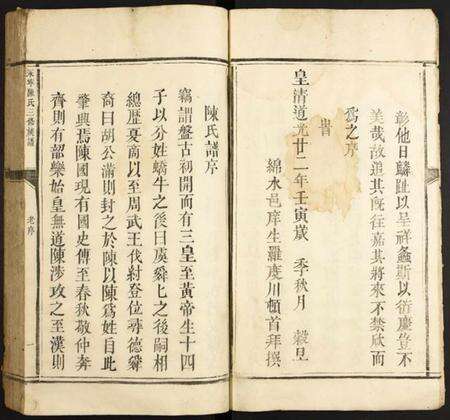 彰他日麟趾以呈祥螽斯以衍慶豈不
美哉故追其既往嘉其將來不禁欣而
為之序
峕
皇清道光廿二年壬寅歲　季秋月　穀旦
綿水邑庠生羅度川頓首拜撰
陳氏譜序
竊謂盤古初開而有三皇至黃帝生十四
子以分姓蟜牛之後曰虞舜七之後嗣相
總歷夏商以至周武王伐紂登位尋德舜
裔曰胡公滿則封之於陳以陳為姓自此
肇興焉陳國現有國史傳至春秋敬仲奔
齊則有韶樂始皇無道陳涉攻之至漢則
陳氏三修族譜
老序
一